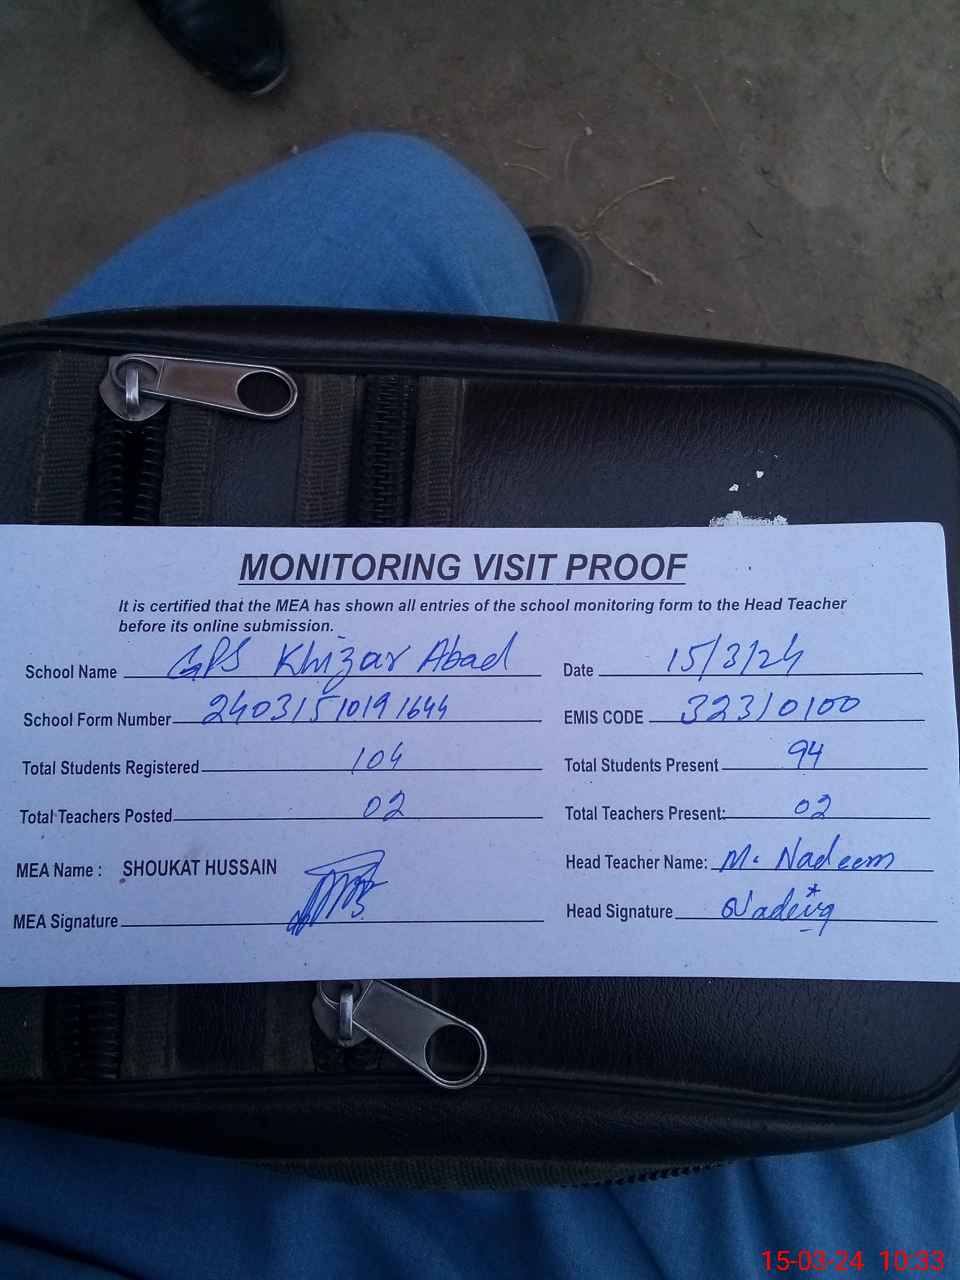 MONITORING VISIT PROOF
It is certified that the MEA has shown all entries of the school monitoring form to the Head Teacher
before its online submission.
School Name GPS Khizar Abad Date 15/3/24
School Form Number 24031510191644 EMIS CODE 32310100
Total Students Registered 104 Total Students Present 94
Total Teachers Posted 02 Total Teachers Present: 02
MEA Name : SHOUKAT HUSSAIN Head Teacher Name: M. Nadeem
MEA Signature Head Signature
15-03-24 10:33